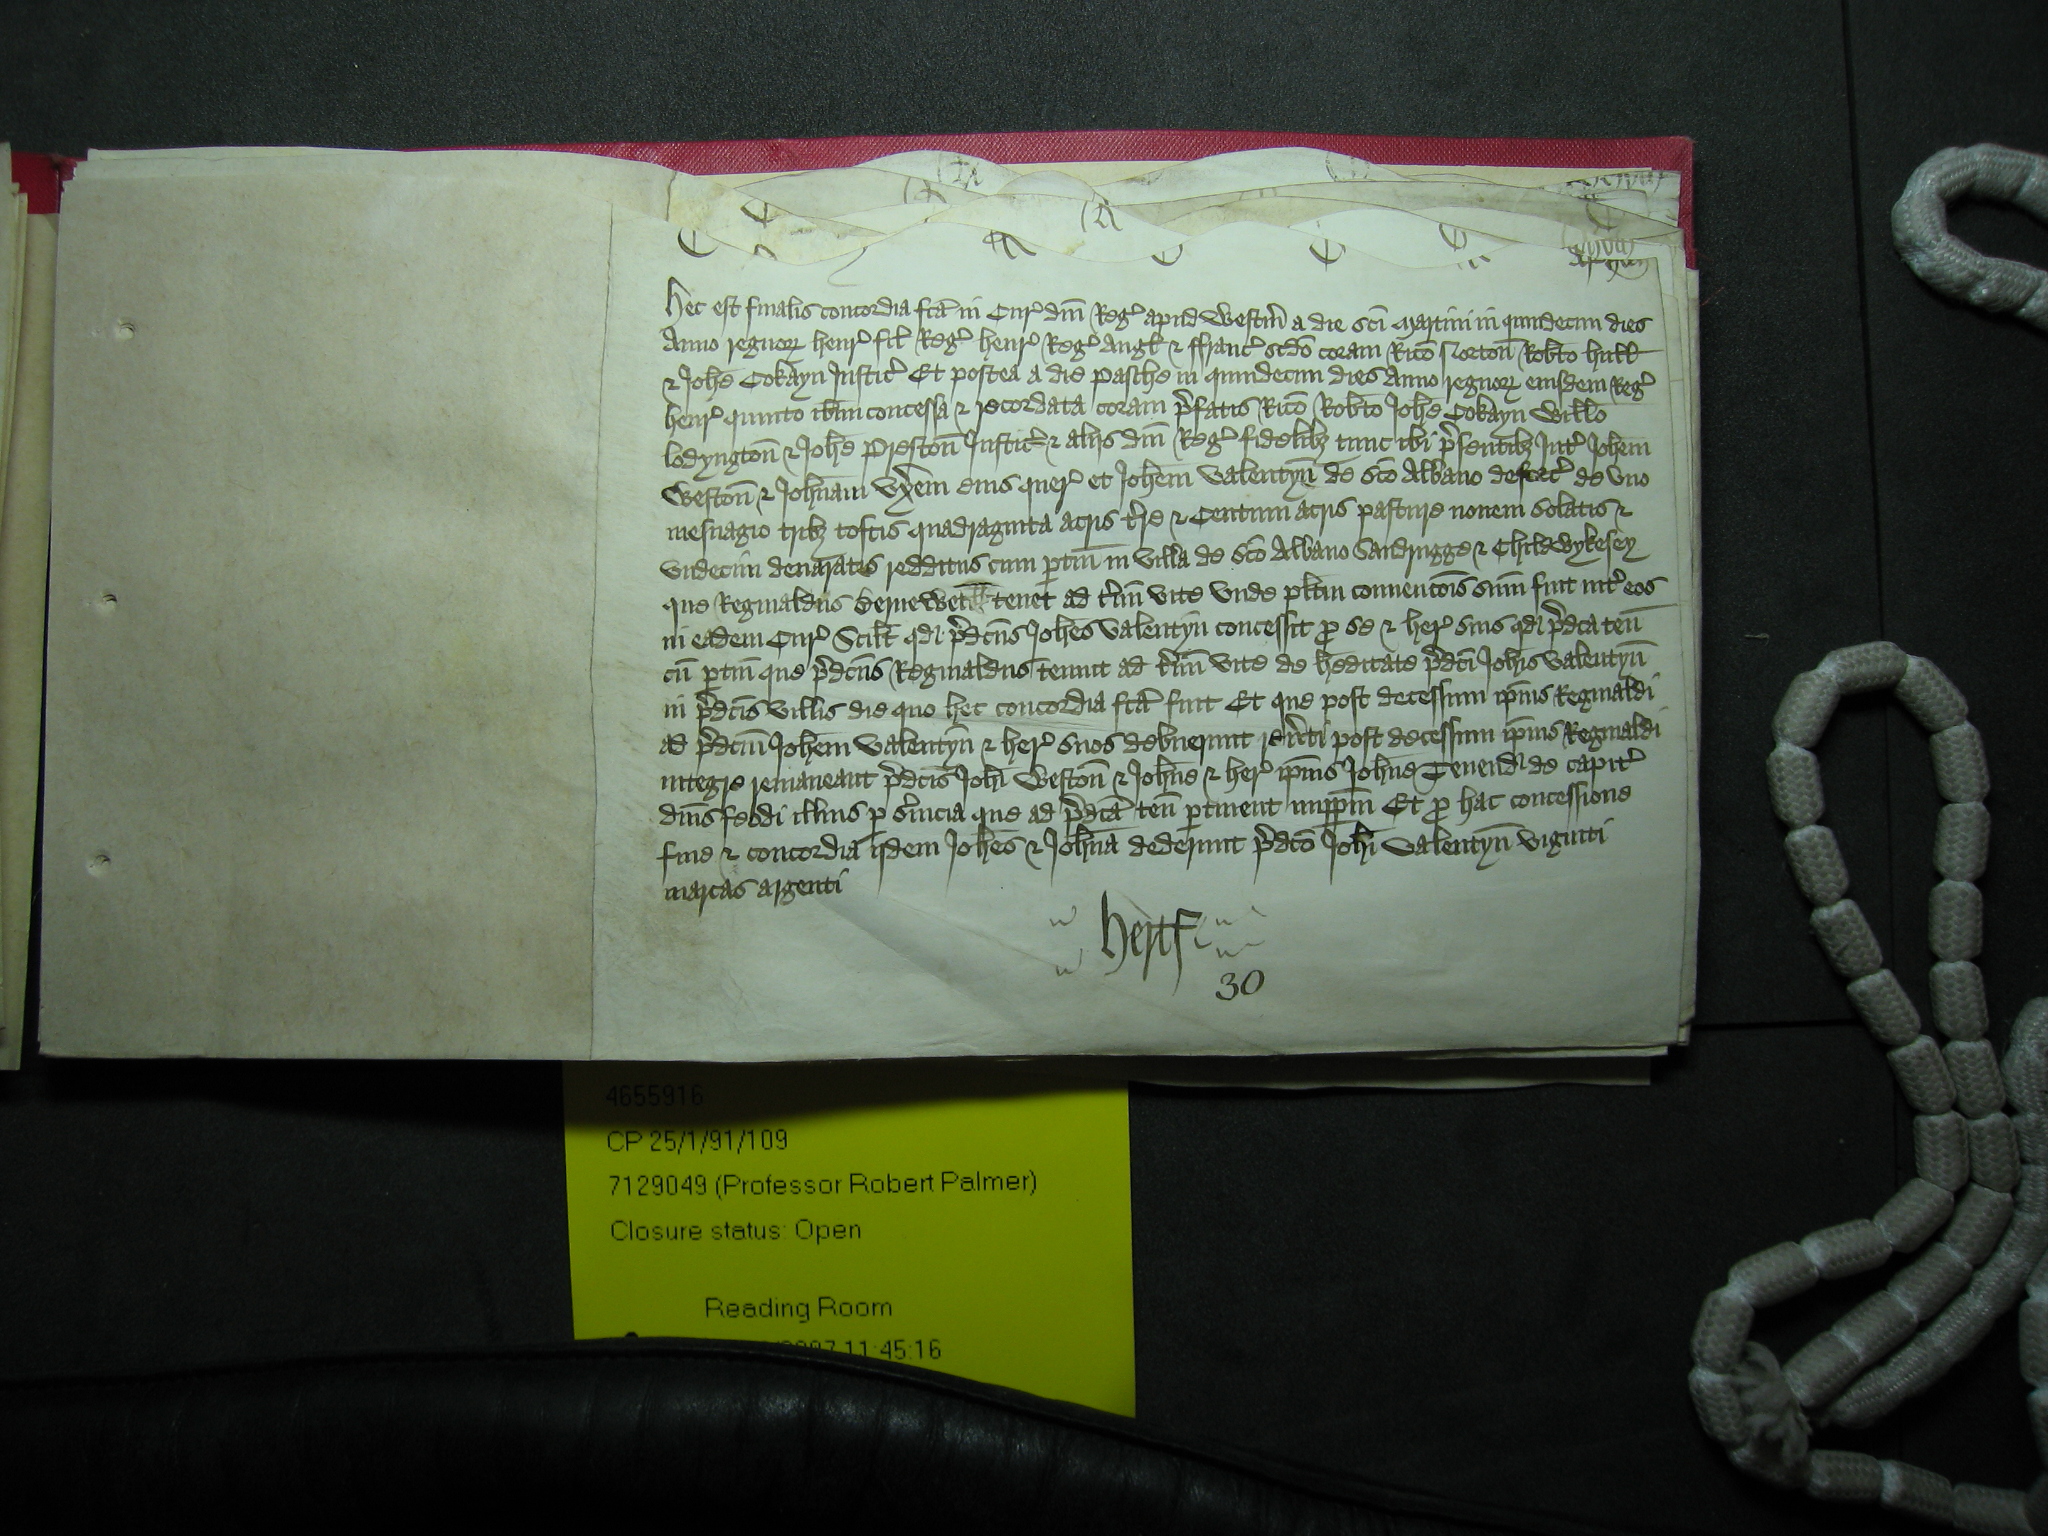 Hec est finalis concordia fcā in Cur' dnī Reg' apud Westm̄ a die scī Martini in quindecim dies
Anno regnorꝝ henr' fil' Reg' henr' Reg' Angł & ffranc' scd̄o coram Ric̄o Norton̄ Rob̄to hull
& Joh̄e Cokayn Justic' Et postea a die Pasche in quindecim dies Anno regnorꝝ eiusdem Reg'
henr' quinto ib̄m concessa & recordata coram p̄fatis Ric̄o Rob̄to Joh̄e Cokayn Will̄o
lodyngton̄ & Joh̄e Preston̄ Justic' & aliis dnī Reg' fidelibꝫ tunc ibi p̄sentibꝫ Int' Joh̄em
Weston̄ & Joh̄nam vx̄em eius quer' et Joh̄em Valentyn̄ de sc̄o Albano deforc' de vno
mesuagio tribꝫ toftis quadraginta acris t̄re & Centum acris pasture nouem solatis &
vndecim denaratis redditus cum ꝑtin̄ in villa de Sc̄o Albano Sandrugge & Childwykesey
que Reginaldus tenet ad t̄m̄ vite vnde pl̄itm conuenc̄ois sum̄ fuit int' eos
in eadem Cur' Scilt̄ qd̄ p̄dc̄us Joh̄es Valentyn concessit ꝓ se & her' suis qd̄ p̄dc̄a ten̄
cū ꝑtin̄ que p̄dc̄us Reginaldus tenuit ad t̄m̄ vite de h̄editate p̄dc̄i Joh̄is Valentyn̄
in p̄dc̄is villis die quo hec concordia fcā fuit Et que post decessum ip̄ius Reginaldi
ad p̄dc̄um Joh̄em Valentyn̄ & her' suos debuerunt reūti post decessum ip̄ius Reginaldi
integre remaneant p̄dc̄is Joh̄i Weston̄ & Joh̄ne & her' ip̄ius Joh̄ne Tenend̄ de capit'
dnīs feodi illius ꝑ s̄uicia que ad p̄dc̄a ten̄ ꝑtinent imꝑpm̄ Et ꝓ hac concessione
fine & concordia ijdem Joh̄es & Joh̄na dederunt p̄dc̄o Joh̄i Valentyn̄ viginti
marcas argenti
hertf
30
4655916
CP 25/1/91/109
7129049 (Professor Robert Palmer)
Closure status: Open
Reading Room
11:45:16